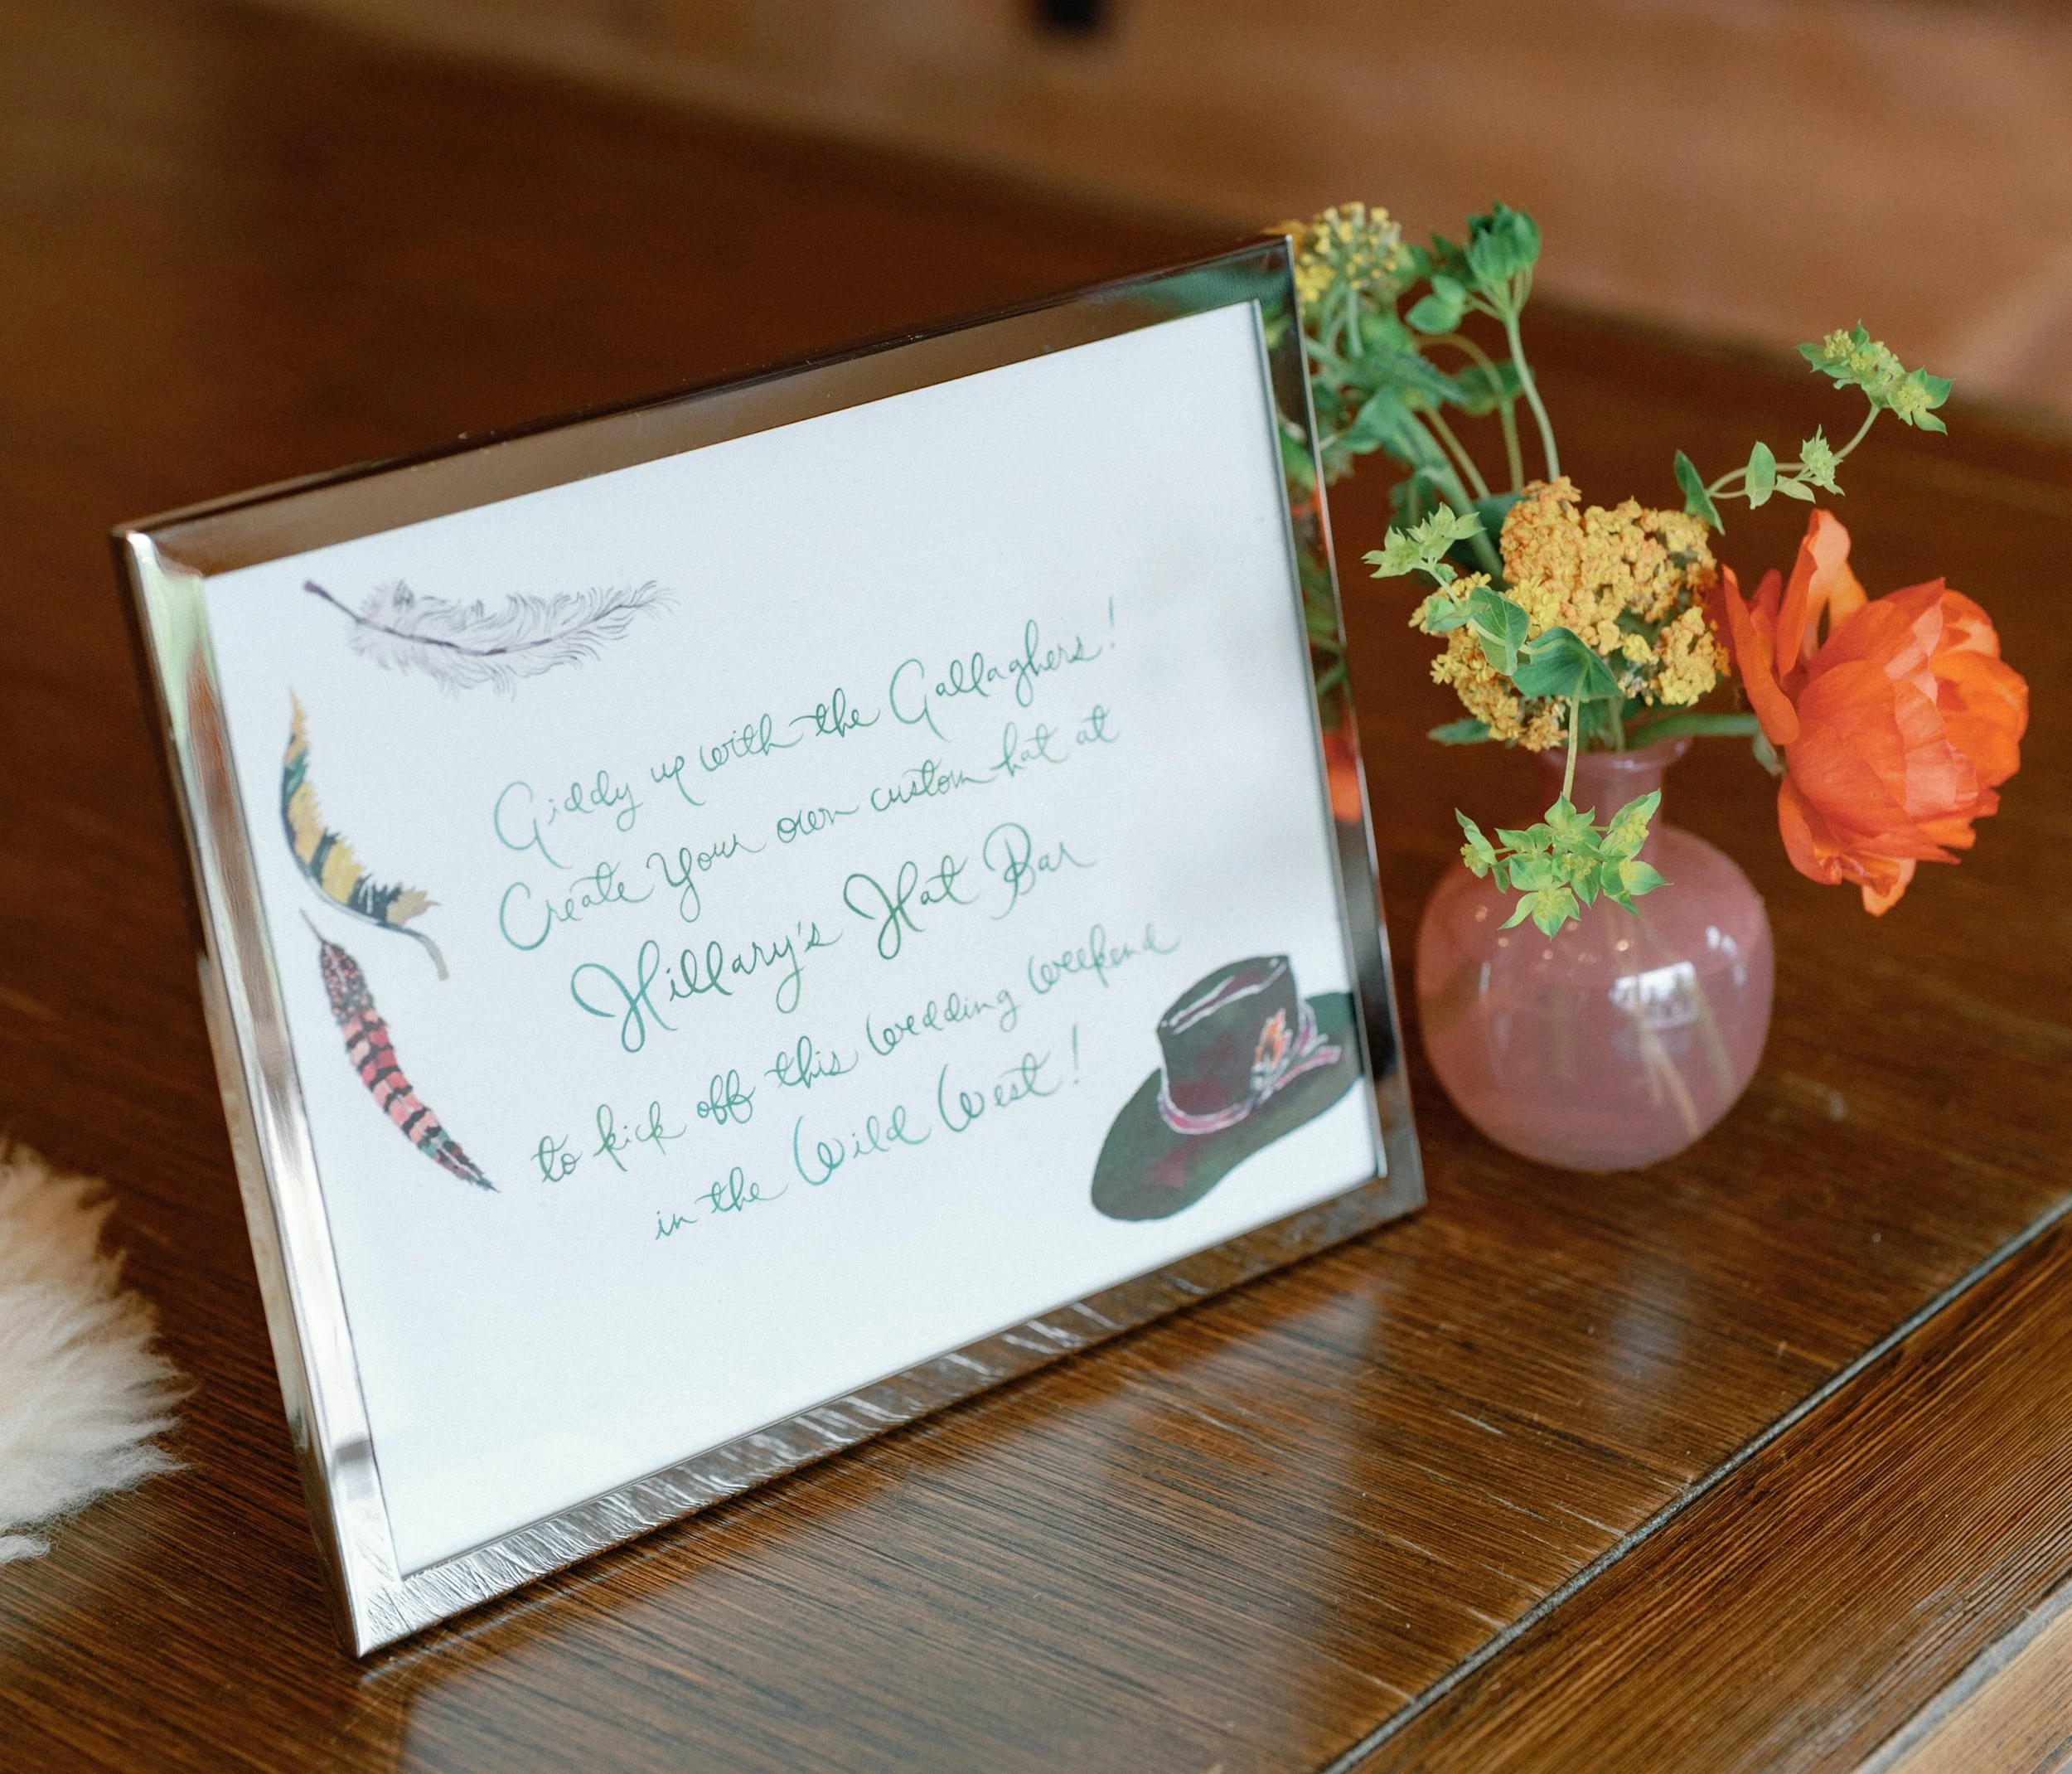 Giddy up with the Gallaghers!
Create Your own custom hat at
Hillary's Hat Bar
to kick off this Wedding Weekend
in the Wild West!